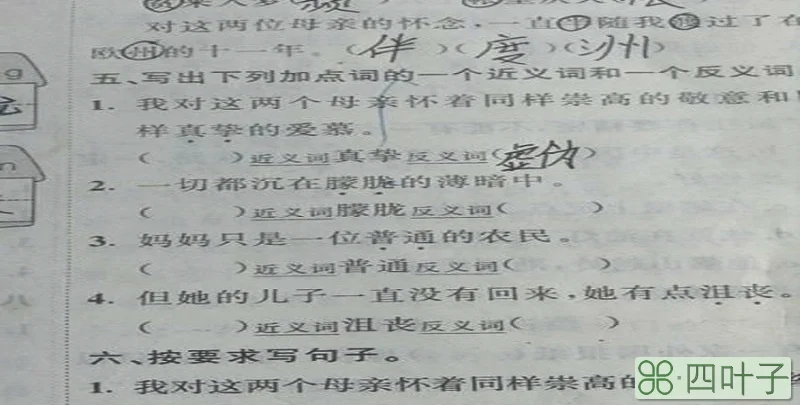 对这两位母亲的怀念，一直中随我渡过了在
欧州的十一年。（伴）（度）（洲）
五、写出下列加点词的一个近义词和一个反义词
1. 我对这两个母亲怀着同样崇高的敬意和
样真挚的爱慕。
（ ）近义词真挚反义词（虚伪）
2. 一切都沉在朦胧的薄暗中。
（ ）近义词朦胧反义词（ ）
3. 妈妈只是一位普通的农民。
（ ）近义词普通反义词（ ）
4. 但她的儿子一直没有回来，她有点沮丧。
（ ）近义词沮丧反义词（ ）
六、按要求写句子。
1. 我对这两个母亲怀着同样崇高的
四叶子